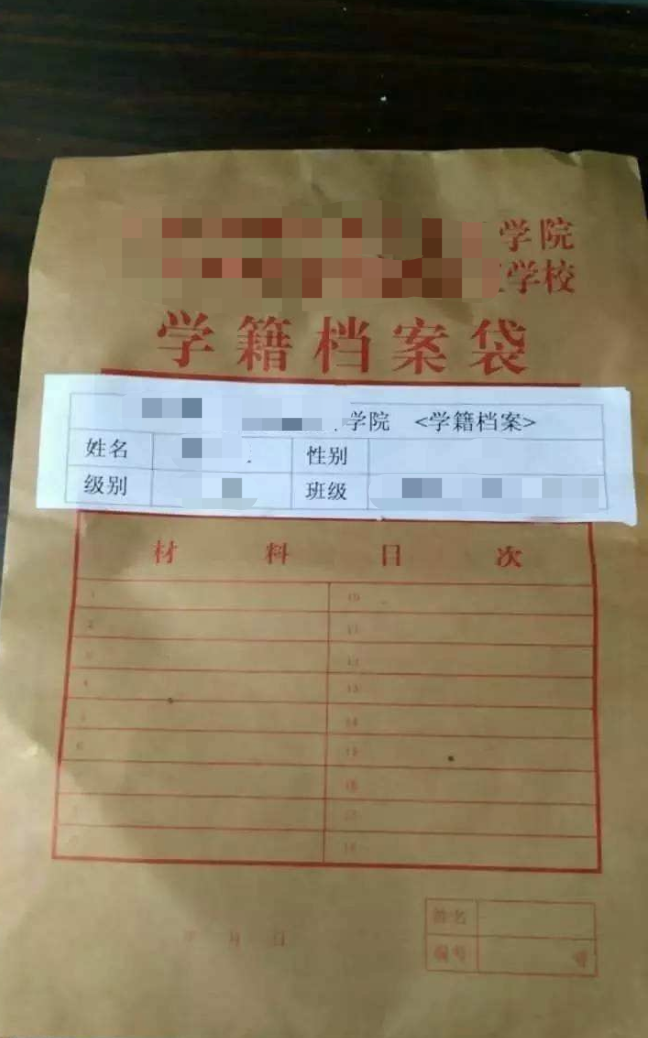 学院
学校
学籍档案袋
学院 <学籍档案>
姓名 性别
级别 班级
材料目次
1 10
2 11
3 12
4 13
5 14
6 15
16
17
18
年 月 日
姓名
编号 号